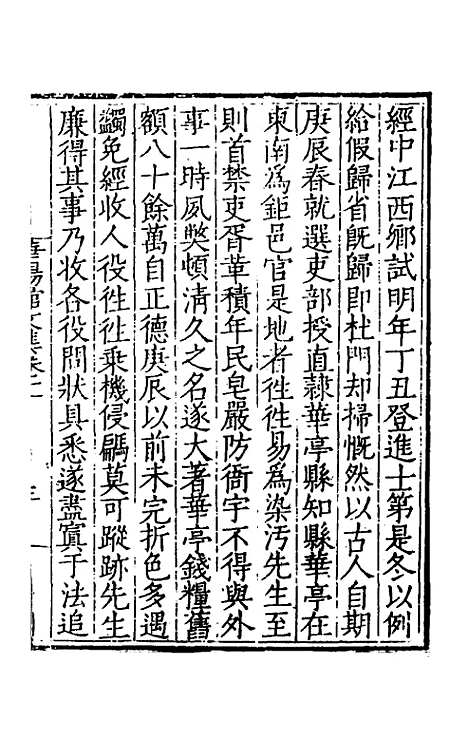 經中江西鄉試明年丁丑登進士第是冬以例
給假歸省旣歸即杜門却掃慨然以古人自期
庚辰春就選吏部授直隷華亭縣知縣華亭在
東南爲鉅邑官是地者徃徃易爲染汚先生至
則首禁吏胥革積年民皂嚴防衙宇不得與外
事一時夙獘頓清久之名遂大著華亭錢糧舊
額八十餘萬自正德庚辰以前未完折色多遇
蠲免經收人役徃徃乗機侵䮄莫可蹤跡先生
廉得其事乃收各役問狀具悉遂盡寘于法追
華陽館文集卷十一